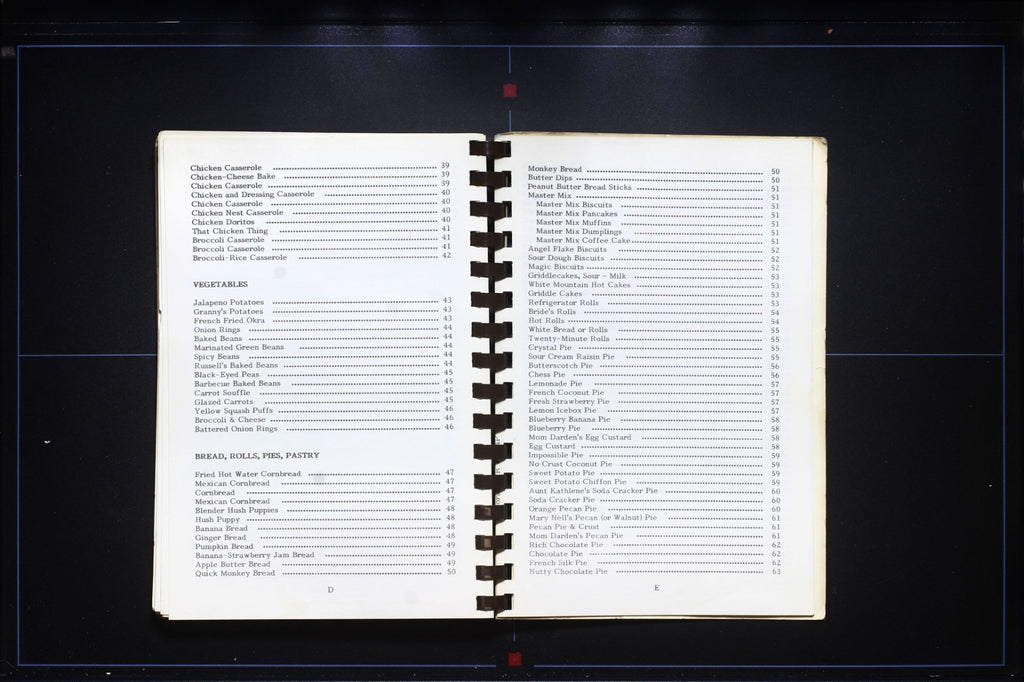 Chicken Casserole 39
Chicken-Cheese Bake 39
Chicken Casserole 39
Chicken and Dressing Casserole 40
Chicken Casserole 40
Chicken Nest Casserole 40
Chicken Doritos 40
That Chicken Thing 41
Broccoli Casserole 41
Broccoli Casserole 41
Broccoli-Rice Casserole 42
VEGETABLES
Jalapeno Potatoes 43
Granny's Potatoes 43
French Fried Okra 43
Onion Rings 44
Baked Beans 44
Marinated Green Beans 44
Spicy Beans 44
Russell's Baked Beans 44
Black-Eyed Peas 45
Barbecue Baked Beans 45
Carrot Souffle 45
Glazed Carrots 45
Yellow Squash Puffs 46
Broccoli & Cheese 46
Battered Onion Rings 46
BREAD, ROLLS, PIES, PASTRY
Fried Hot Water Cornbread 47
Mexican Cornbread 47
Cornbread 47
Mexican Cornbread 47
Blender Hush Puppies 48
Hush Puppy 48
Banana Bread 48
Ginger Bread 48
Pumpkin Bread 49
Banana-Strawberry Jam Bread 49
Apple Butter Bread 49
Quick Monkey Bread 50
D
Monkey Bread 50
Butter Dips 50
Peanut Butter Bread Sticks 51
Master Mix 51
Master Mix Biscuits 51
Master Mix Pancakes 51
Master Mix Muffins 51
Master Mix Dumplings 51
Master Mix Coffee Cake 51
Angel Flake Biscuits 52
Sour Dough Biscuits 52
Magic Biscuits 52
Griddlecakes, Sour - Milk 53
White Mountain Hot Cakes 53
Griddle Cakes 53
Refrigerator Rolls 53
Bride's Rolls 54
Hot Rolls 54
White Bread or Rolls 55
Twenty-Minute Rolls 55
Crystal Pie 55
Sour Cream Raisin Pie 55
Butterscotch Pie 56
Chess Pie 56
Lemonade Pie 57
French Coconut Pie 57
Fresh Strawberry Pie 57
Lemon Icebox Pie 57
Blueberry Banana Pie 58
Blueberry Pie 58
Mom Darden's Egg Custard 58
Egg Custard 58
Impossible Pie 59
No Crust Coconut Pie 59
Sweet Potato Pie 59
Sweet Potato Chiffon Pie 59
Aunt Kathlene's Soda Cracker Pie 60
Soda Cracker Pie 60
Orange Pecan Pie 60
Mary Nell's Pecan (or Walnut) Pie 61
Pecan Pie & Crust 61
Mom Darden's Pecan Pie 61
Rich Chocolate Pie 62
Chocolate Pie 62
French Silk Pie 62
Nutty Chocolate Pie 63
E